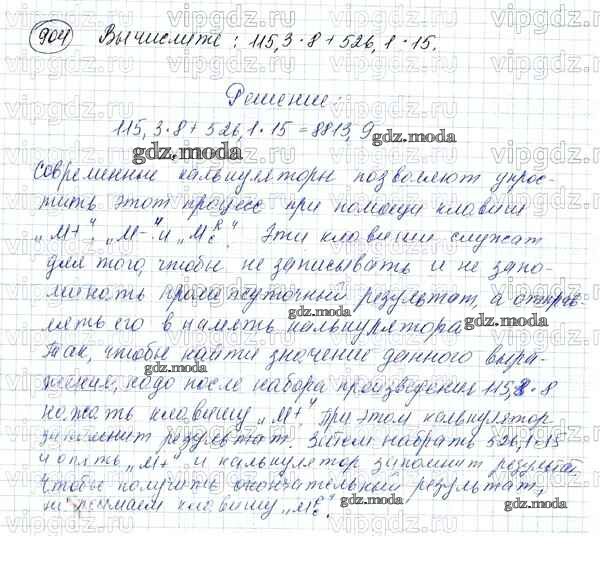 904 Вычислите: 115,3·8+526,1·15.
Решение:
115,3·8+526,1·15=8813,9
современные калькуляторы позволяют упрос-
тить этот процесс при помощи клавиш
„М+", „М-" и „М R C". Эти клавиши служат
для того, чтобы не записывать и не запо-
минать промежуточный результат, а отправ-
лять его в память калькулятора
Так, чтобы найти значение данного выра-
жения, надо после набора произведения 115,3·8
нажать клавишу „М+" При этом калькулятор
запомнит результат. Затем набрать 526,1·15
и опять „М+" и калькулятор запомнит результат
Чтобы получить окончательный результат,
нажимаем клавишу „М R C"
vipgdz.ru
gdz.moda